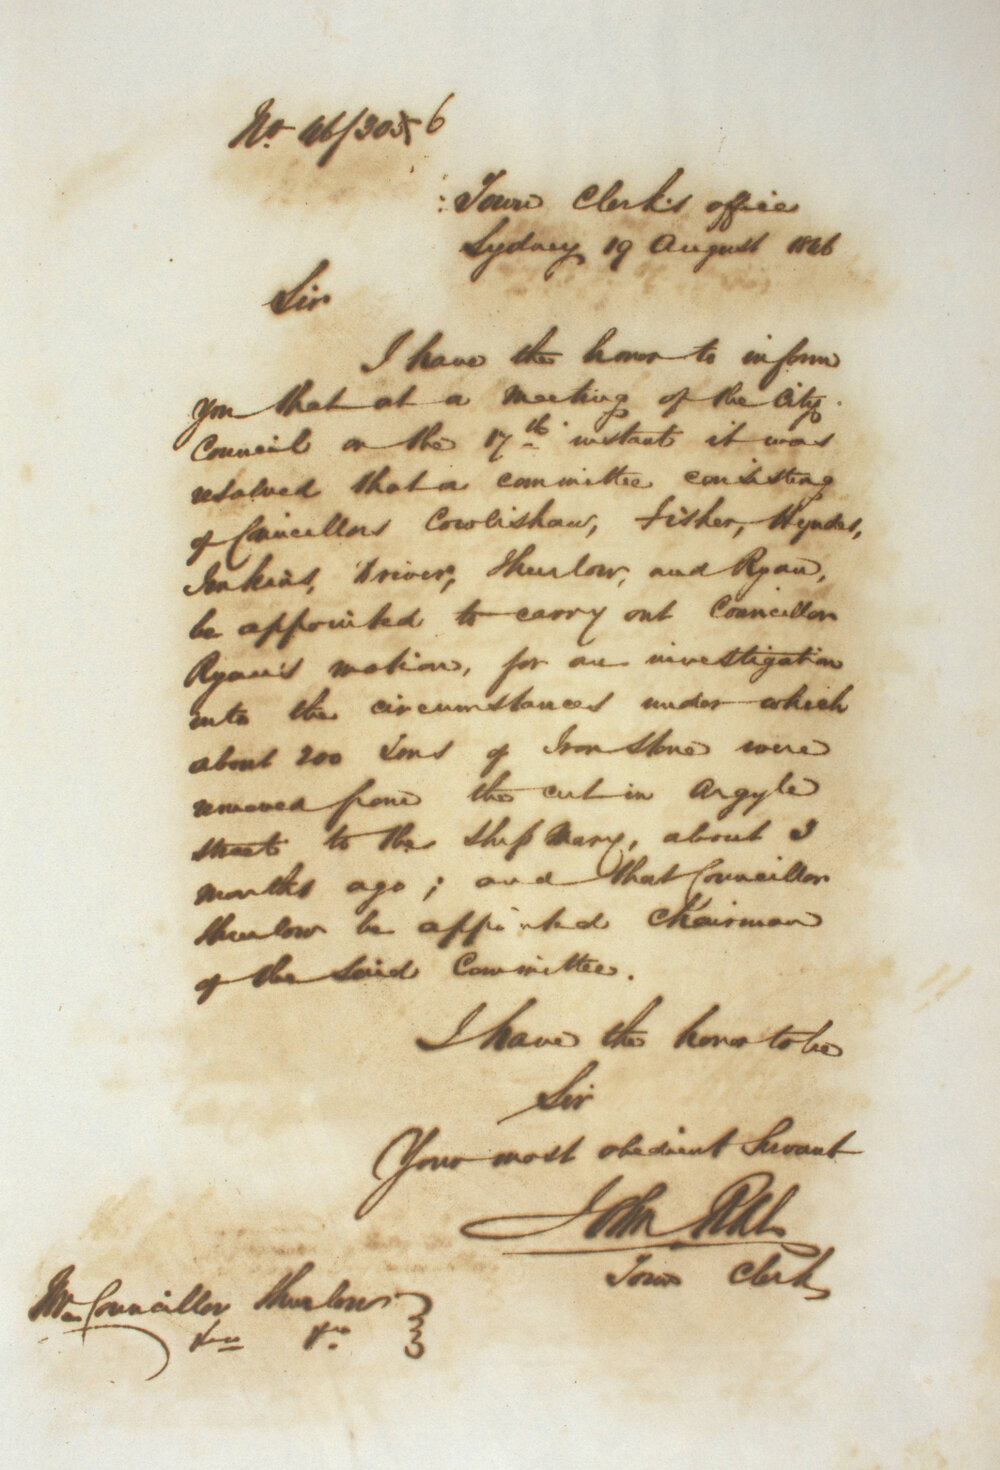 No. 46/305 6
Town Clerk's office
Sydney 19 August 1846
Sir
I have the honor to inform
you that at a meeting of the City
Council on the 17th instant it was
resolved that a committee consisting
of Councillors Cowlishaw, Fisher, Hyndes,
Jenkins, Driver, Thurlow, and Ryan,
be appointed to carry out Councillor
Ryan's motion, for an investigation
into the circumstances under which
about 200 tons of Iron Stone were
removed from the cut in Argyle
street to the ship Mary, about 3
months ago; and that Councillor
Thurlow be appointed Chairman
of the said Committee.
I have the honor to be
Sir
Your most obedient Servant
John
Town Clerk
Mr. Councillor Thurlow